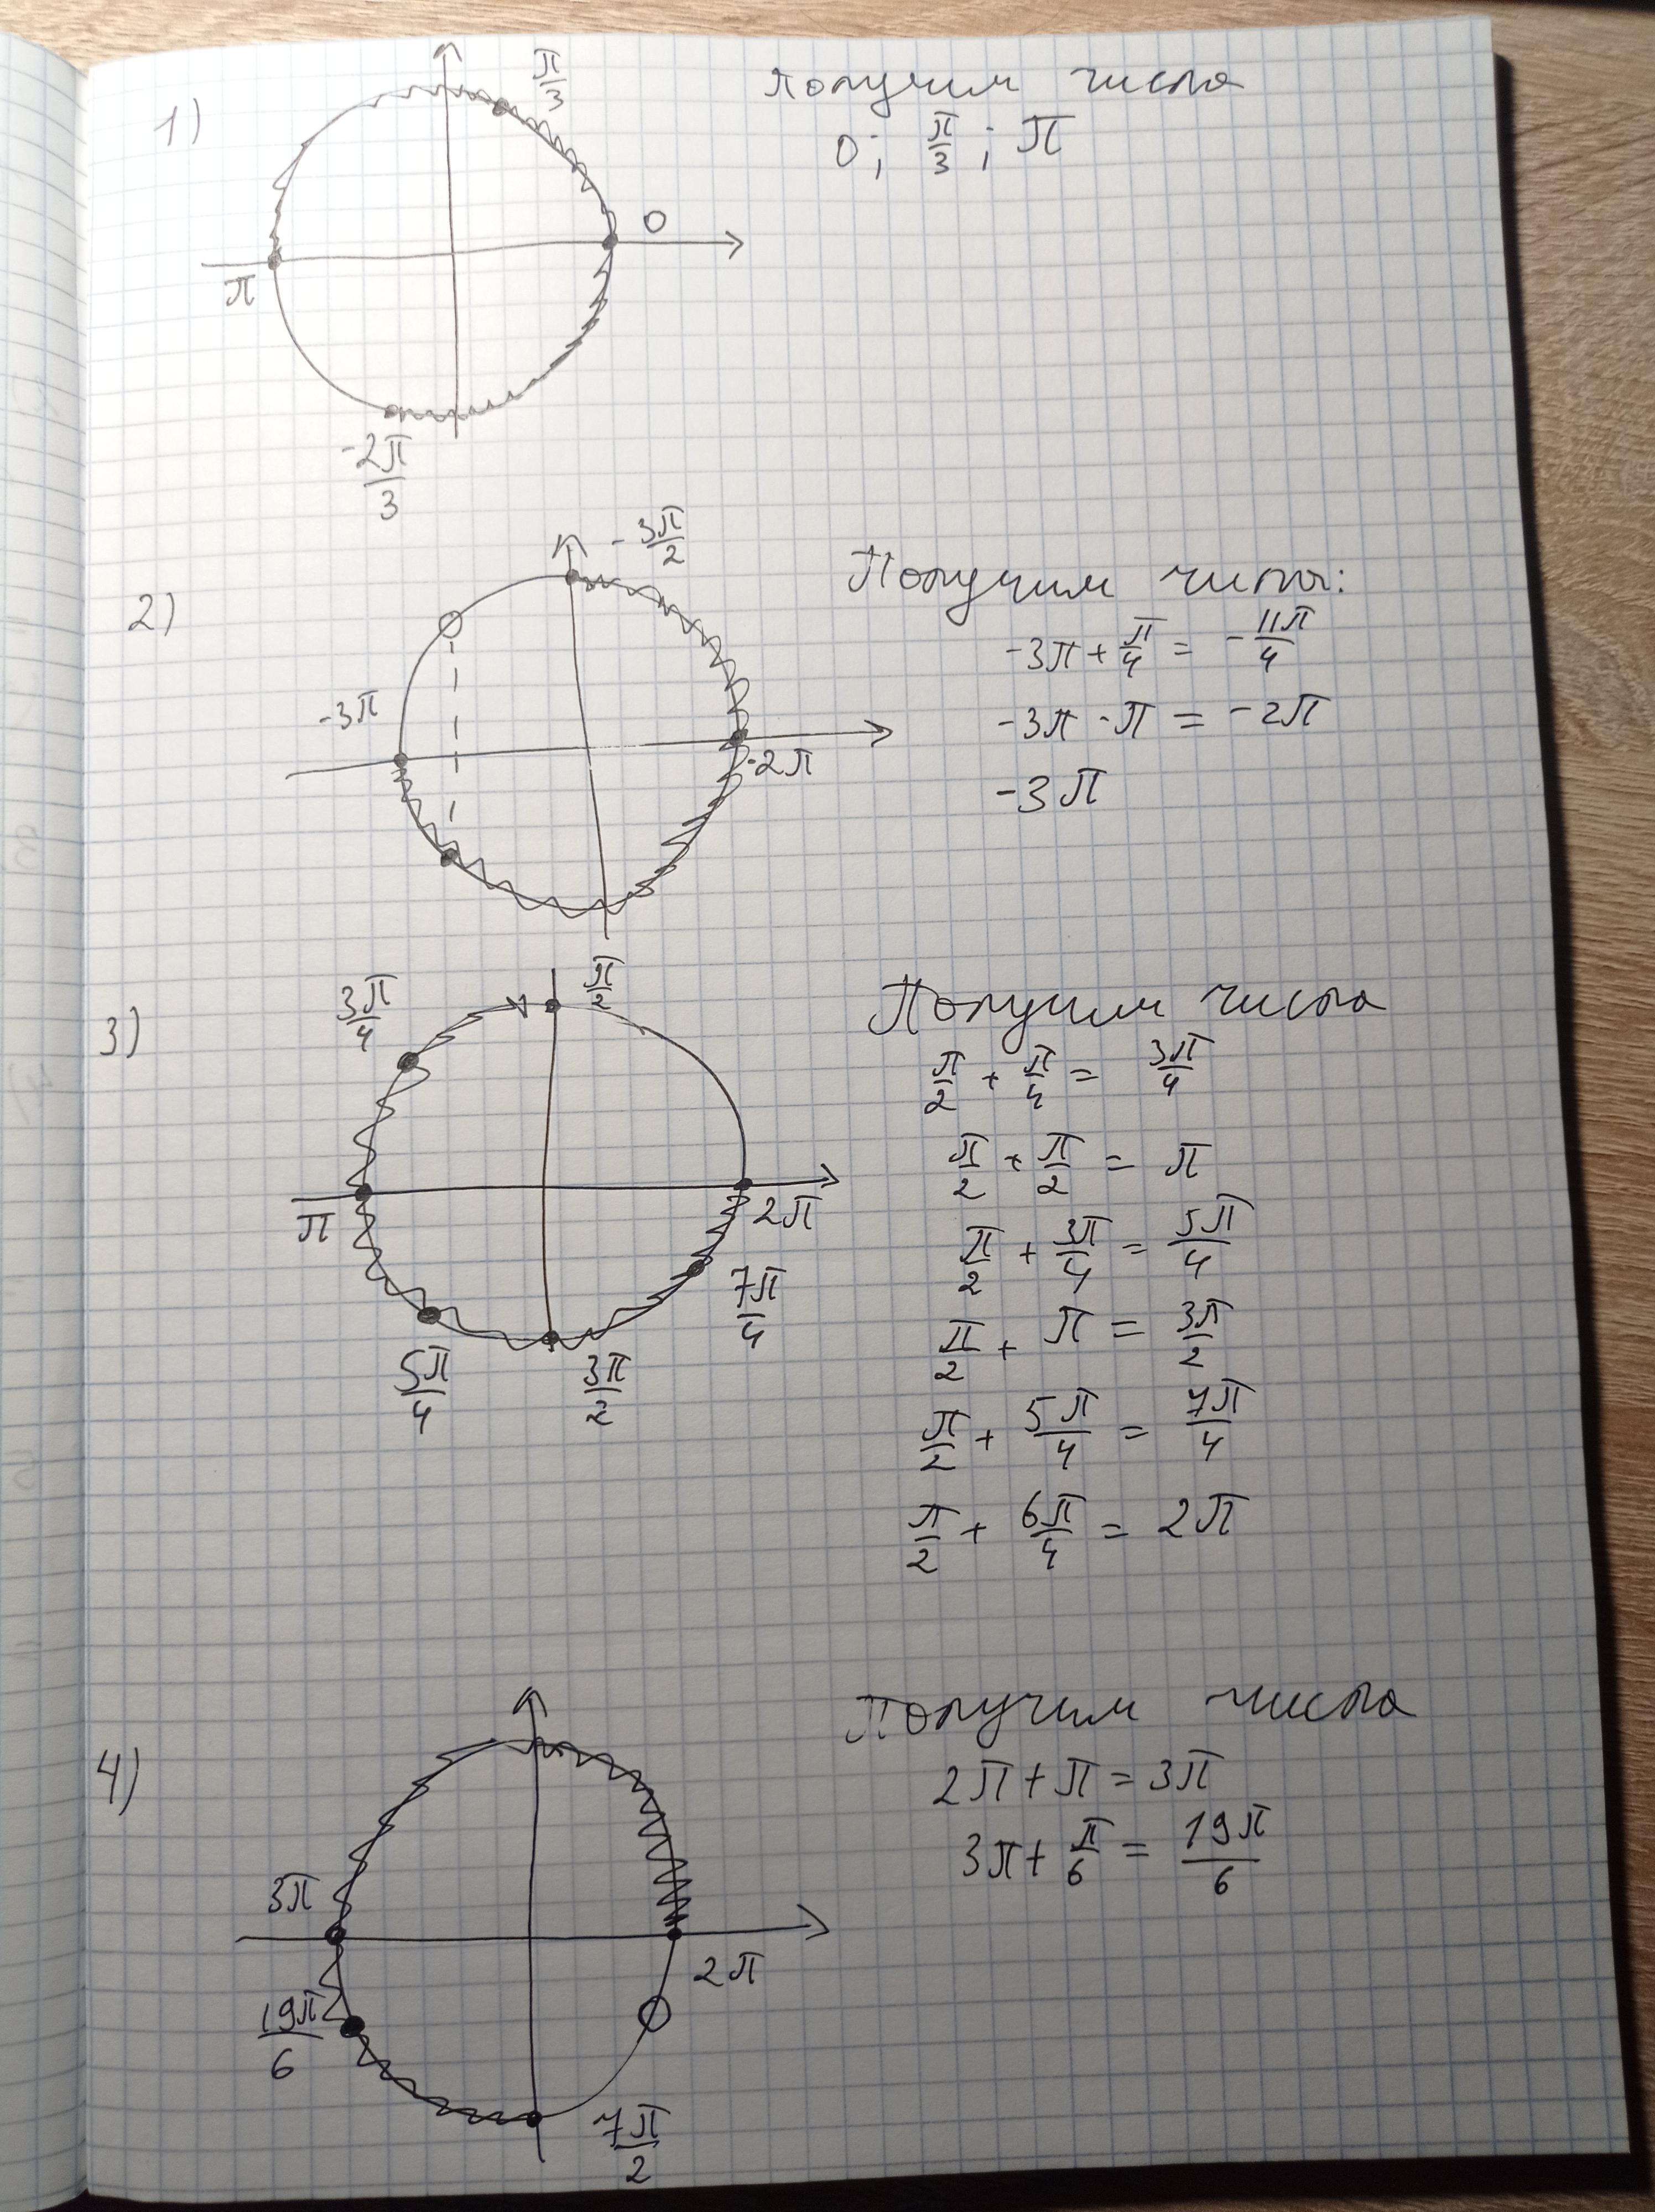 1)
π/3
0
π
-2π/3
Получим числа
0; π/3; π
2)
-3π/2
-3π
-2π
Получим числа:
-3π + π/4 = -11π/4
-3π - π = -2π
-3π
3)
π/2
3π/4
π
2π
7π/4
5π/4
3π/2
Получим числа
π/2 + π/4 = 3π/4
π/2 + π/2 = π
π/2 + 3π/4 = 5π/4
π/2 + π = 3π/2
π/2 + 5π/4 = 7π/4
π/2 + 6π/4 = 2π
4)
3π
2π
19π/6
7π/2
Получим числа
2π + π = 3π
3π + π/6 = 19π/6